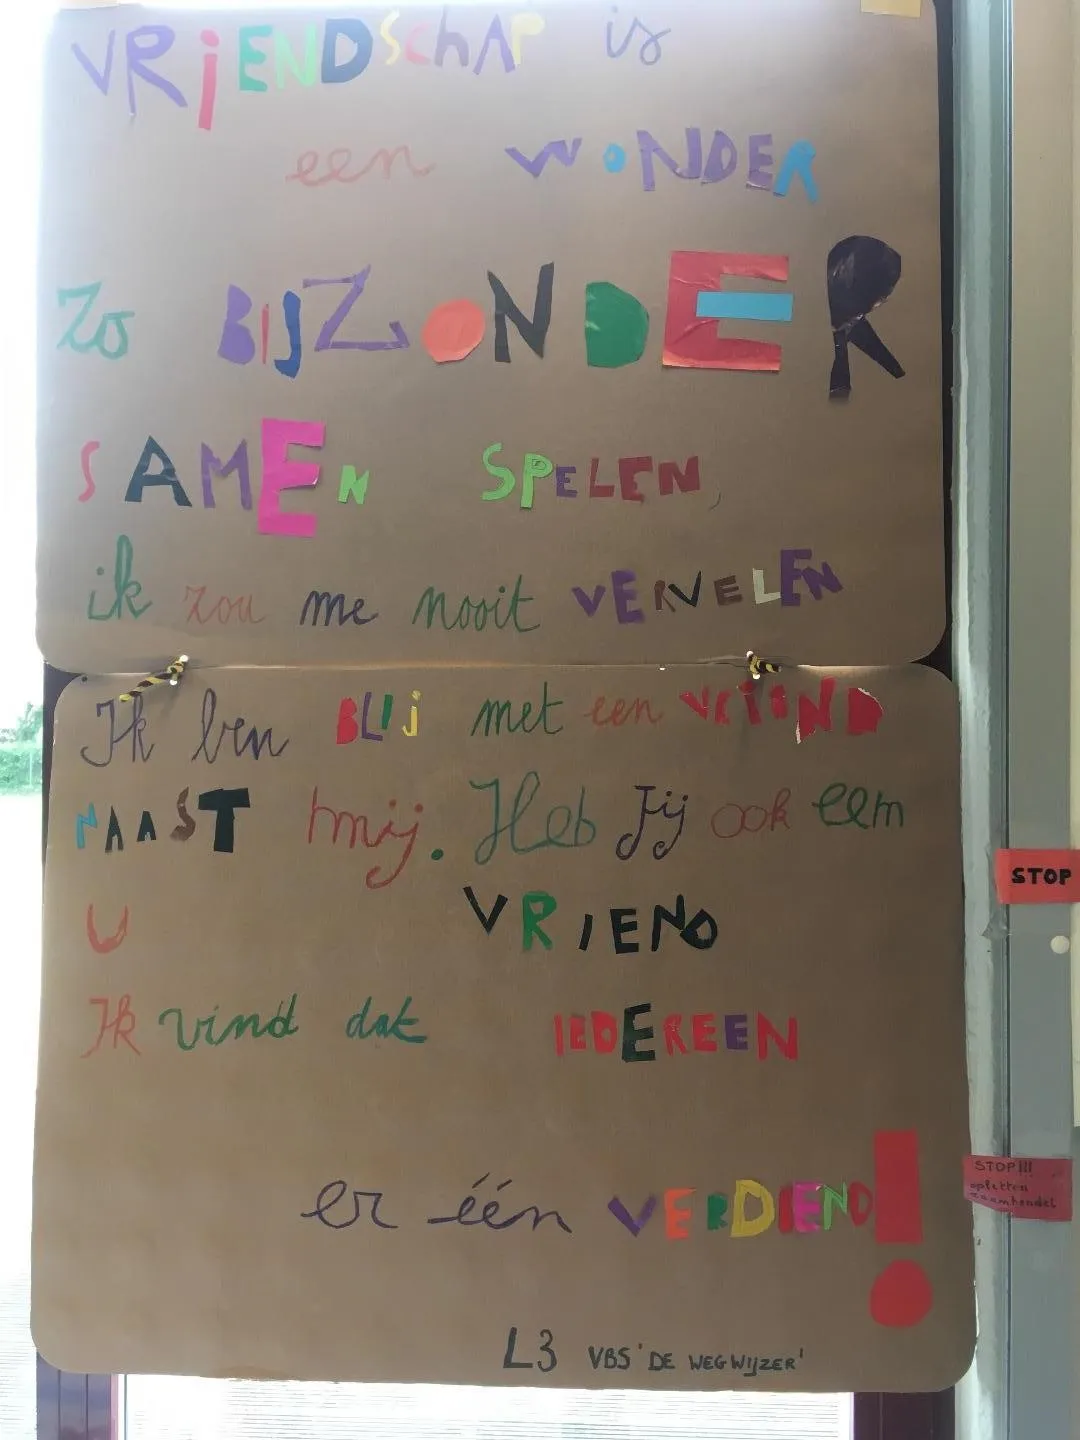 VRiENDSchAP is
een WoNDER
Zo BIJZONDER
SAMEN SPELEN,
ik zou me nooit VERVELEN
Ik ben BLIJ met een VRIEND
NAAST mij. Heb Jij ook een
U VRIEND
Ik vind dat IEDEREEN
er één VERDIEND!
L3 VBS 'DE WEGWIJZER'
STOP
STOP!!!
opletten
raamhendel